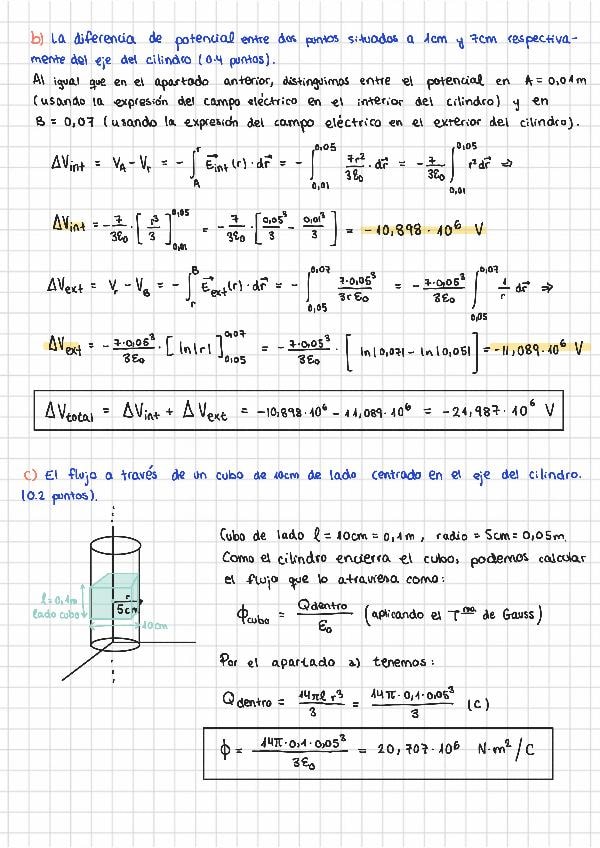 b) La diferencia de potencial entre dos puntos situados a 1cm y 7cm respectiva-
mente del eje del cilindro (0.4 puntos).
Al igual que en el apartado anterior, distinguimos entre el potencial en A = 0,01m
(usando la expresión del campo eléctrico en el interior del cilindro) y en
B = 0,07 (usando la expresión del campo eléctrico en el exterior del cilindro).
ΔV_int = V_A - V_r = - ∫_A^r E⃗_int(r)·dr⃗ = - ∫_{0,01}^{0,05} 7r²/3ε₀ · dr⃗ = - 7/3ε₀ ∫_{0,01}^{0,05} r² dr⃗ ⇒
ΔV_int = - 7/3ε₀ · [r³/3]_{0,01}^{0,05} = - 7/3ε₀ · [0,05³/3 - 0,01³/3] = -10,898·10⁶ V
ΔV_ext = V_r - V_B = - ∫_r^B E⃗_ext(r)·dr⃗ = - ∫_{0,05}^{0,07} 7·0,05³/3rε₀ = - 7·0,05³/3ε₀ ∫_{0,05}^{0,07} 1/r dr⃗ ⇒
ΔV_ext = - 7·0,05³/3ε₀ · [ln|r|]_{0,05}^{0,07} = - 7·0,05³/3ε₀ · [ln|0,07| - ln|0,05|] = -11,089·10⁶ V
ΔV_total = ΔV_int + ΔV_ext = -10,898·10⁶ - 11,089·10⁶ = -21,987·10⁶ V
c) El flujo a través de un cubo de 10cm de lado centrado en el eje del cilindro.
(0.2 puntos).
l=0,1m
lado cubo
r
5cm
10cm
Cubo de lado l = 10cm = 0,1m, radio = 5cm = 0,05m.
Como el cilindro encierra el cubo, podemos calcular
el flujo que lo atraviesa como:
ϕ_cubo = Qdentro/ε₀ (aplicando el Tᵐᵃ de Gauss)
Por el apartado a) tenemos:
Qdentro = 14πl r³/3 = 14π·0,1·0,05³/3 (C)
ϕ = 14π·0,1·0,05³/3ε₀ = 20,707·10⁶ N·m²/C